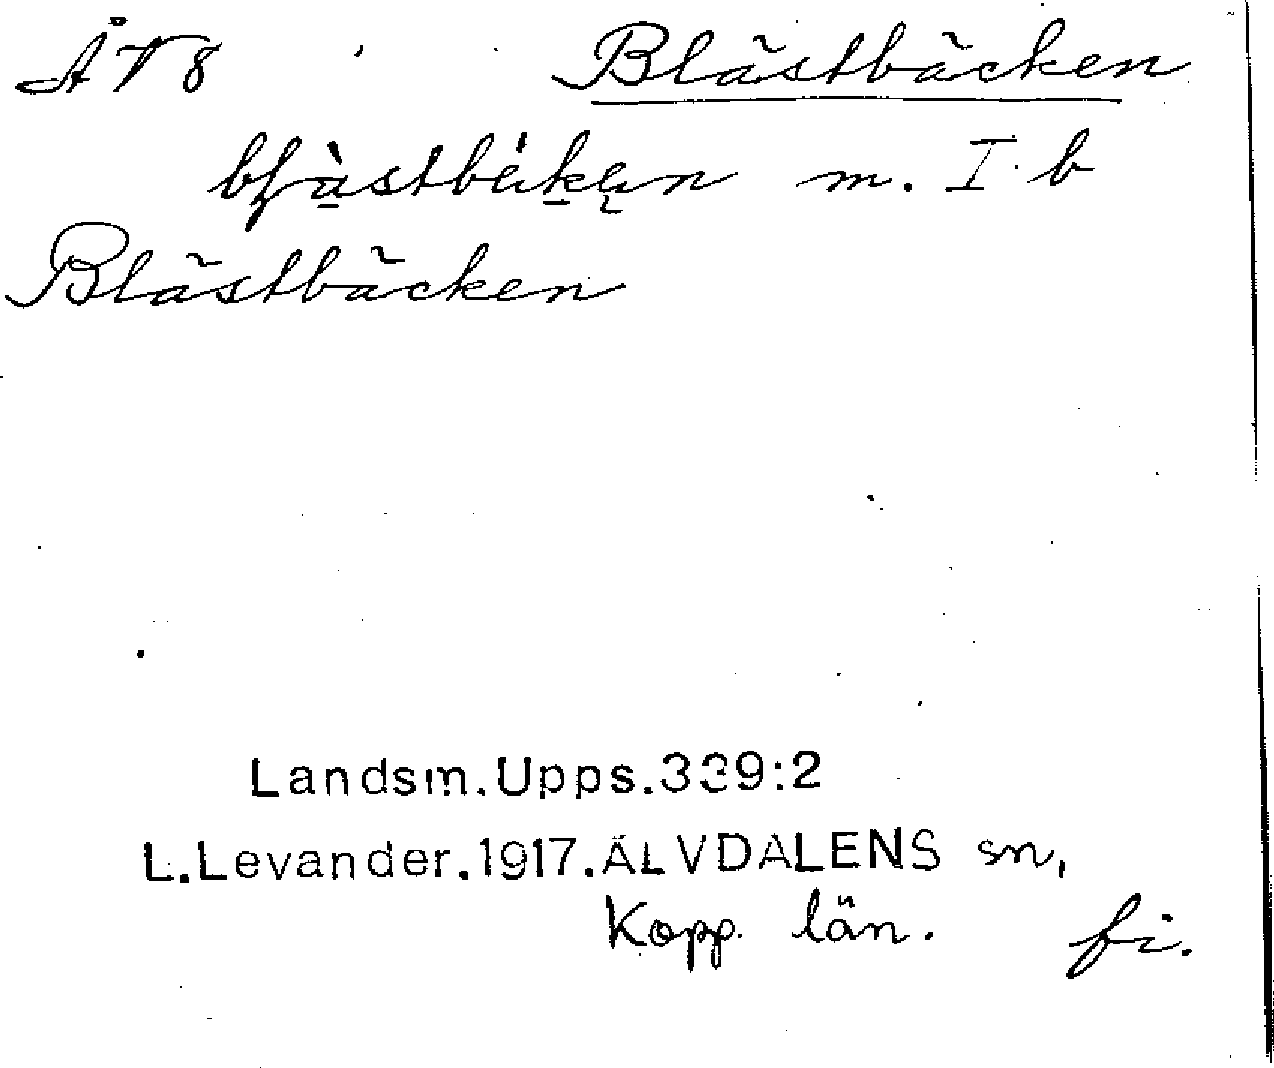 ÅV8 Blästbäcken
m. I b
Blästbäcken
Landsm.Upps.339:2
L.Levander.1917.ÄLVDALENS sn,
Kopp. län. fi.